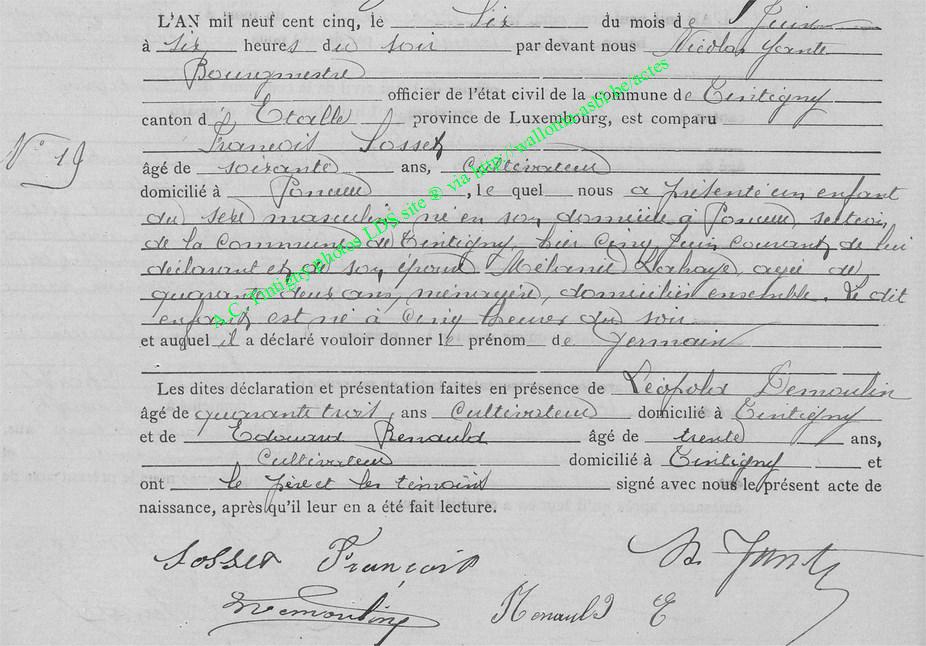 L'AN mil neuf cent cinq, le six du mois de Juin
à six heures du soir par devant nous Nicolas Jante
Bourgmestre
officier de l'état civil de la commune de Tintigny
canton d'Etalle province de Luxembourg, est comparu
N° 19
François Sosset
âgé de soixante ans, cultivateur
domicilié à Poncelle, le quel nous a présenté un enfant
du sexe masculin, né en son domicile à Poncelle, section
de la commune de Tintigny, hier cinq Juin courant, de lui
déclarant et de son épouse Mélanie Lahaye, agée de
quarante deux ans, ménagère, domiciliés ensemble. Le dit
enfant est né à cinq heures du soir
et auquel il a déclaré vouloir donner le prénom de Germain
Les dites déclaration et présentation faites en présence de Léopold Demoulin
âgé de quarante trois, ans cultivateur domicilié à Tintigny
et de Edouard Renauld âgé de trente ans,
cultivateur domicilié à Tintigny et
ont le père et les témoins signé avec nous le présent acte de
naissance, après qu'il leur en a été fait lecture.
Sosset François
Demoulin Renauld E
A.C. Tintigny photos LDS site ® via http://wallonia-asbl.be/actes